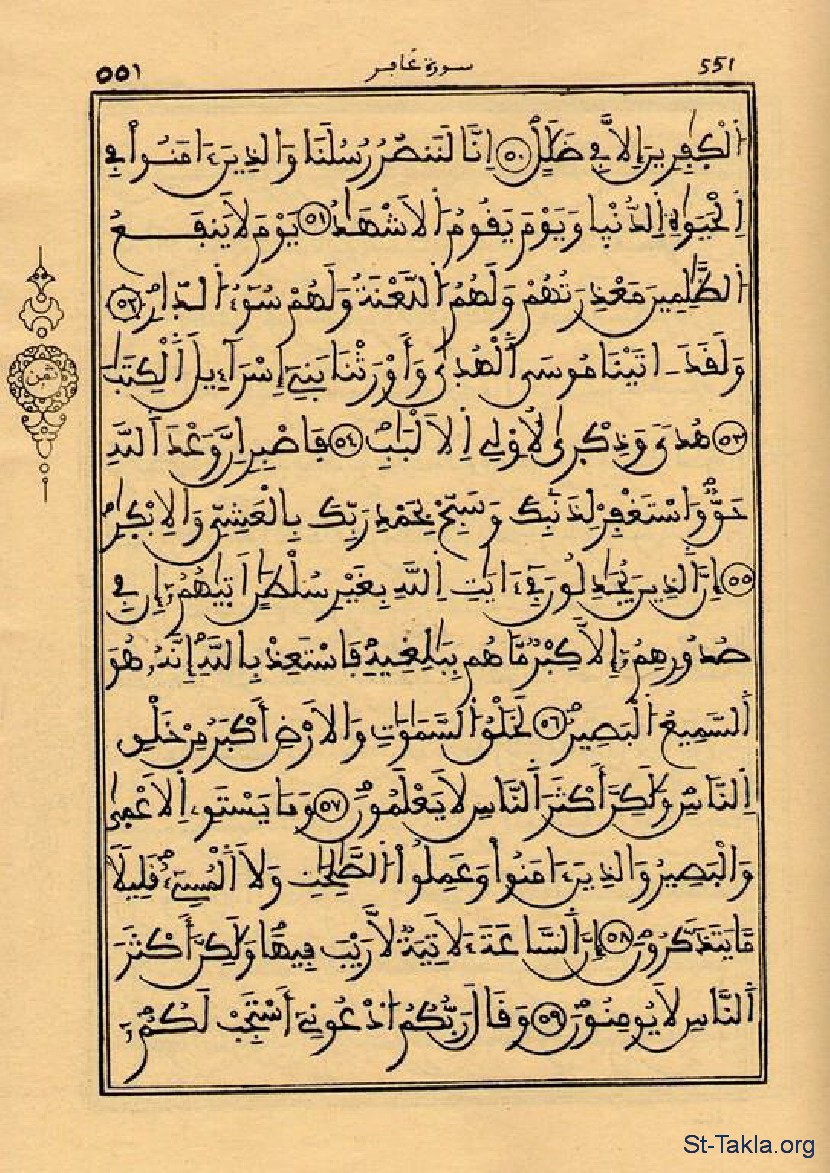 ٥٥١ سورة غافر 551
اَ۬لْكٰفِرِينَ إِلَّا فِے ضَلَٰلٍ ۝٥٠ اِنَّا لَنَنصُرُ رُسُلَنَا وَالذِينَ ءَامَنُواْ فِے
اِ۬لْحَيَوٰةِ اِ۬لدُّنْي۪ا وَيَوْمَ يَقُومُ اُ۬لَاشْهَٰدُ ۝٥١ يَوْمَ لَا يَنفَعُ
اُ۬لظَّٰلِمِينَ مَعْذِرَتُهُمْ وَلَهُمُ اُ۬للَّعْنَةُ وَلَهُمْ سُوٓءُ اُ۬لدّ۪ارِ ۝٥٢
وَلَقَدَ اٰتَيْنَا مُوسَي اَ۬لْهُد۪يٰ وَأَوْرَثْنَا بَنِےٓ إِسْرَآءِيلَ اَ۬لْكِتَٰبَ
۝٥٣ هُديٗ وَذِكْر۪يٰ لِأُوْلِے اِ۬لَالْبَٰبِ ۝٥٤ فَاصْبِرِ اِنَّ وَعْدَ اَ۬للَّهِ
حَقّٞ وَاسْتَغْفِرْ لِذَنۢبِكَ وَسَبِّحْ بِحَمْدِ رَبِّكَ بِالْعَشِيِّ وَالِابْكٰ۪رِ
۝٥٥ إِنَّ اَ۬لذِينَ يُجَٰدِلُونَ فِےٓ ءَايَٰتِ اِ۬للَّهِ بِغَيْرِ سُلْطَٰنٍ اَت۪يٰهُمُۥٓ إِن فِے
صُدُورِهِمُۥٓ إِلَّا كِبْرٞ مَّا هُم بِبَٰلِغِيهِ فَاسْتَعِذْ بِاللَّهِ إِنَّهُۥ هُوَ
اَ۬لسَّمِيعُ اُ۬لْبَصِيرُ ۝٥٦ لَخَلْقُ اُ۬لسَّمَٰوَٰتِ وَالَارْضِ أَكْبَرُ مِنْ خَلْقِ
اِ۬لنَّاسِ وَلَٰكِنَّ أَكْثَرَ اَ۬لنَّاسِ لَا يَعْلَمُونَ ۝٥٧ وَمَا يَسْتَوِے اِ۬لَاعْم۪يٰ
وَالْبَصِيرُ وَالذِينَ ءَامَنُواْ وَعَمِلُواْ اُ۬لصَّٰلِحَٰتِ وَلَا اَ۬لْمُسِےٓءُ قَلِيلٗا
مَّا يَتَذَكَّرُونَ ۝٥٨ إِنَّ اَ۬لسَّاعَةَ ءَلَاتِيَةٞ لَّا رَيْبَ فِيهَا وَلَٰكِنَّ أَكْثَرَ
اَ۬لنَّاسِ لَا يُومِنُونَ ۝٥٩ وَقَالَ رَبُّكُمُ اُ۟دْعُونِےٓ أَسْتَجِبْ لَكُمُۥٓ
ثمن
St-Takla.org